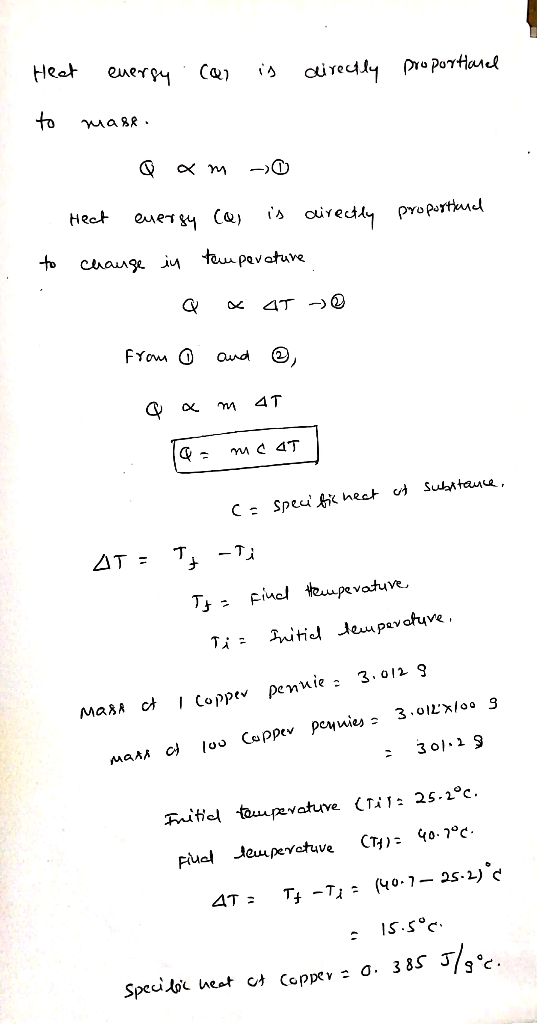 Heat energy (Q) is directly proportional
to mass.
Q ∝ m →①
Heat energy (Q) is directly proportional
to change in temperature
Q ∝ ΔT →②
From ① and ②,
Q ∝ m ΔT
Q = m c ΔT
C = specific heat of substance.
ΔT = Tf - Ti
Tf = Final temperature
Ti = Initial temperature.
Mass of 1 copper pennie = 3.012 g
mass of 100 copper pennies = 3.012×100 g
= 301.2 g
Initial temperature (Ti) = 25.2°C.
Final temperature (Tf) = 40.7°C.
ΔT = Tf - Ti = (40.7 - 25.2)°C
= 15.5°C.
Specific heat of copper = 0.385 J/g°C.